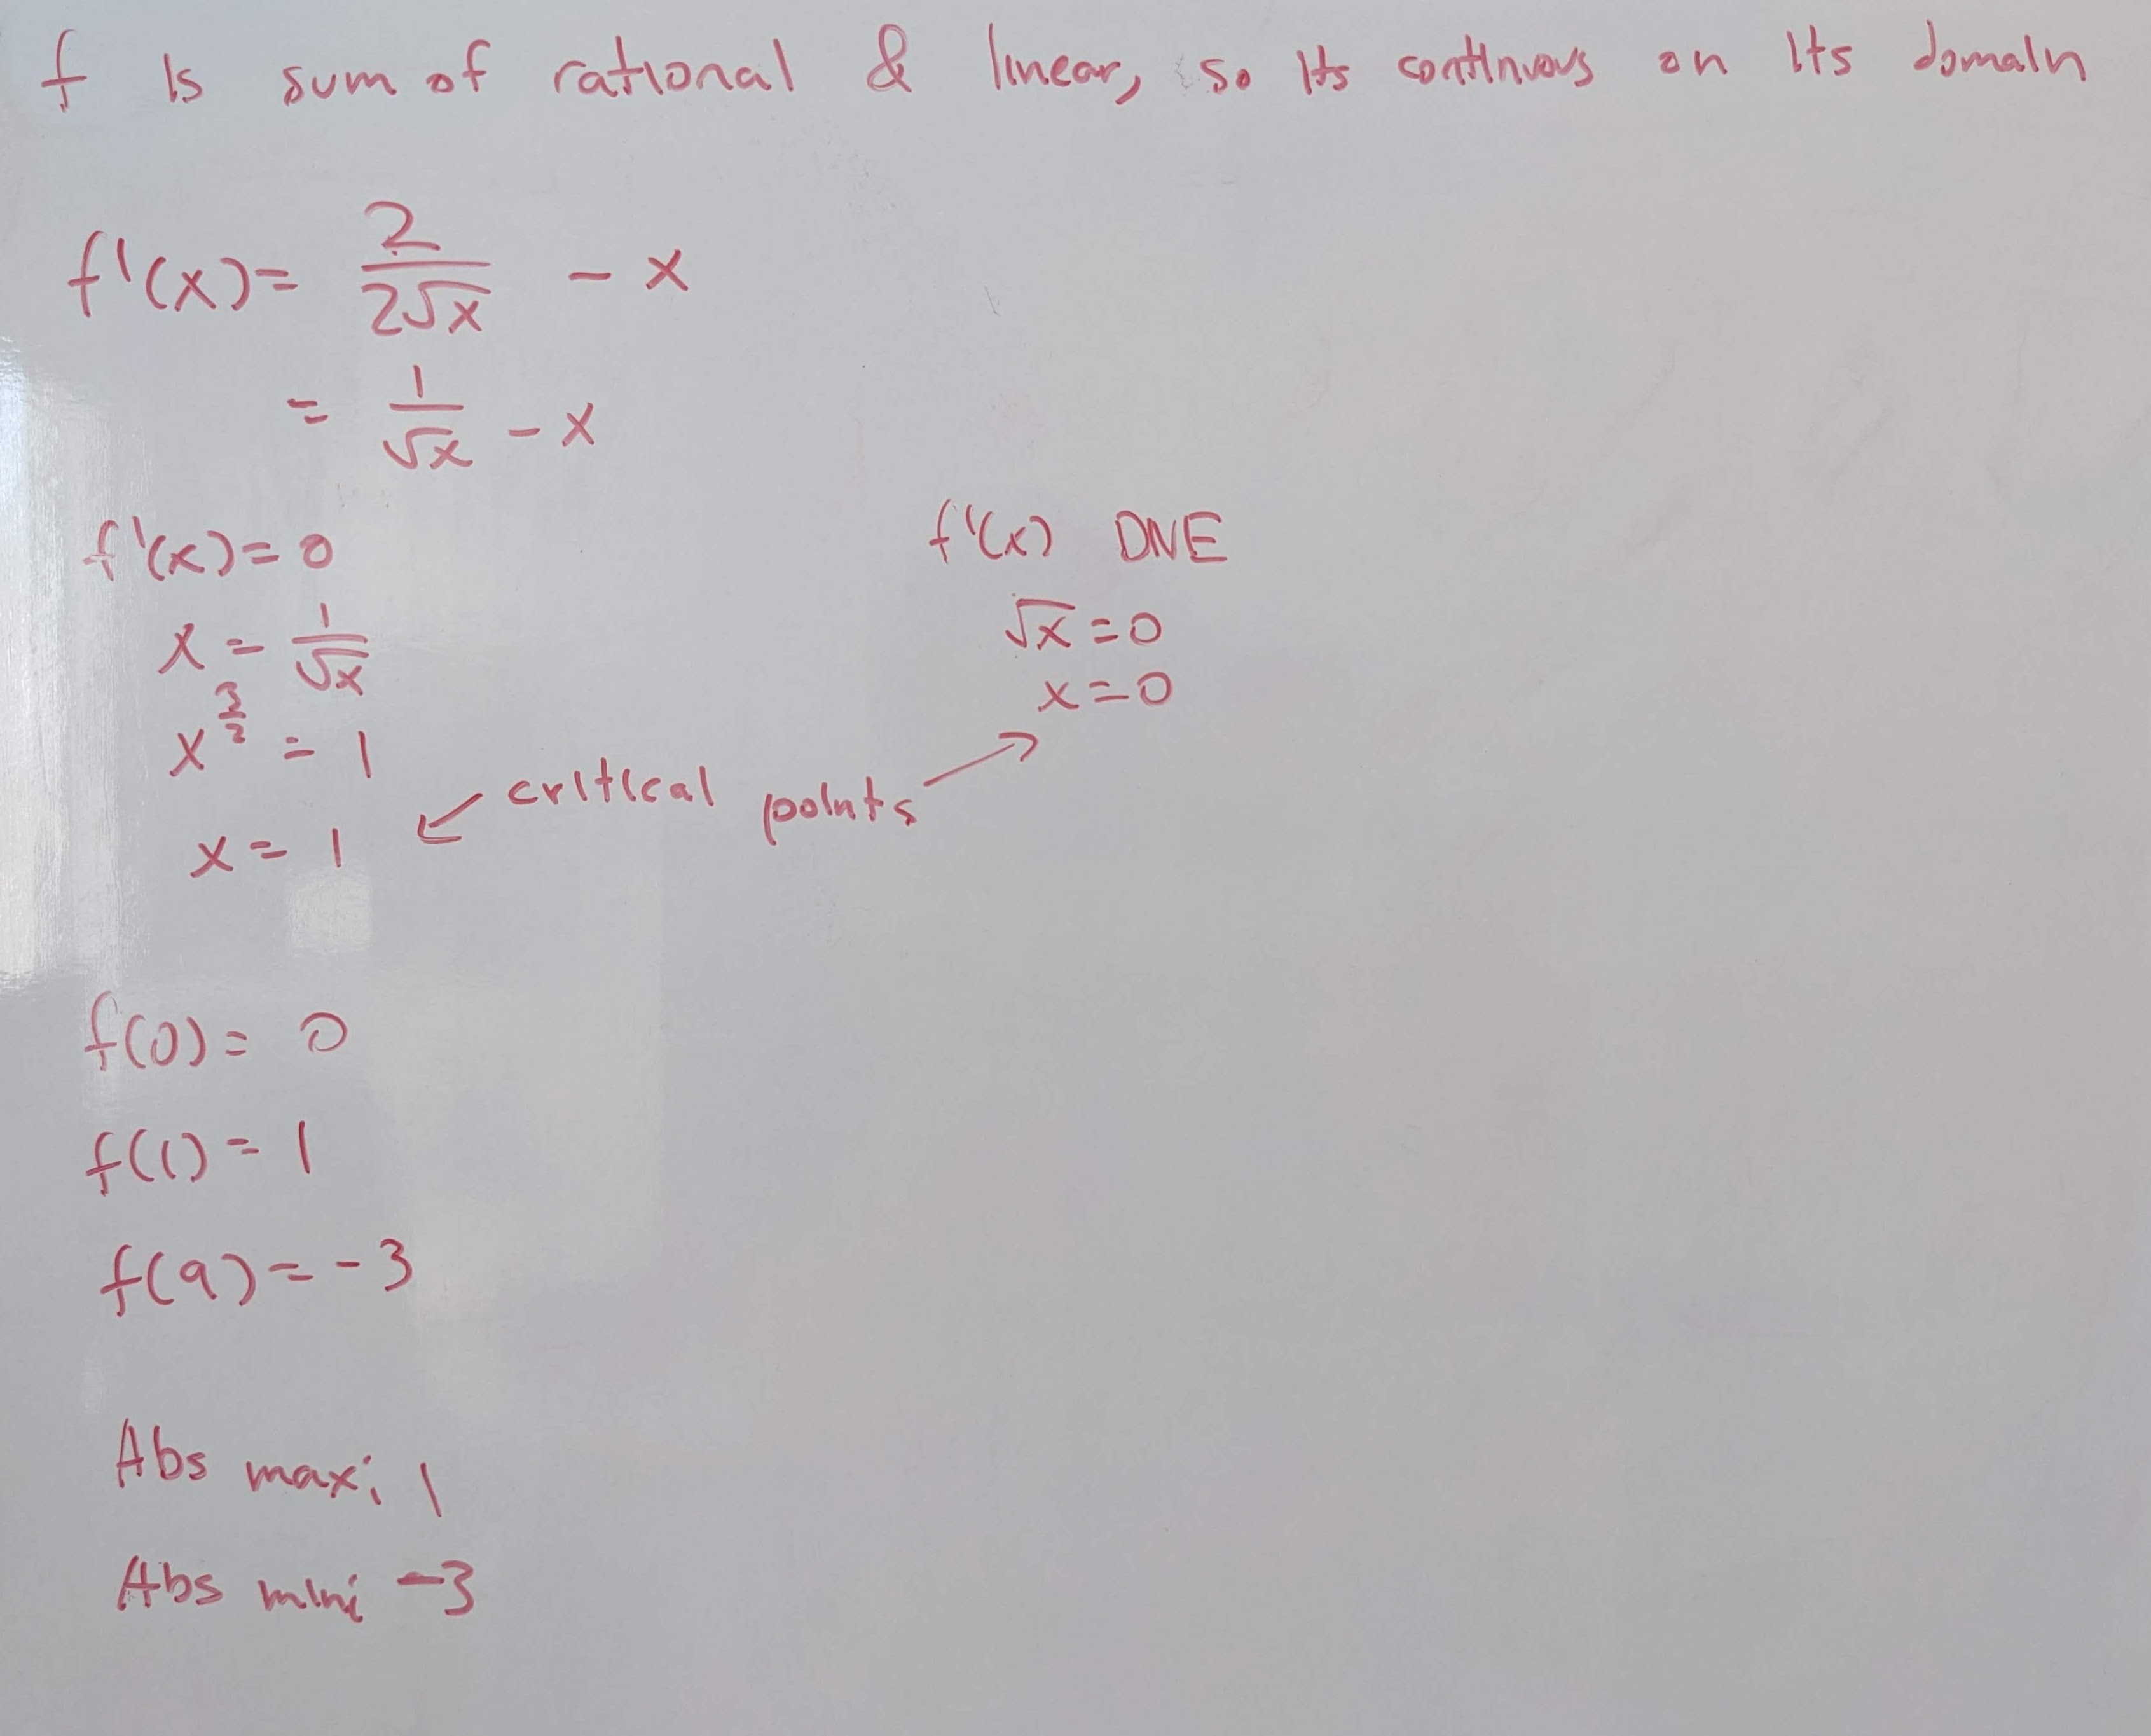 f is sum of rational & linear, so its continuous on its domain
f'(x) = 2/(2√x) - x
= 1/√x - x
f'(x) = 0
x = 1/√x
x^(3/2) = 1
x = 1
f'(x) DNE
√x = 0
x = 0
↙ critical points ↗
f(0) = 0
f(1) = 1
f(9) = -3
Abs max: 1
Abs min: -3